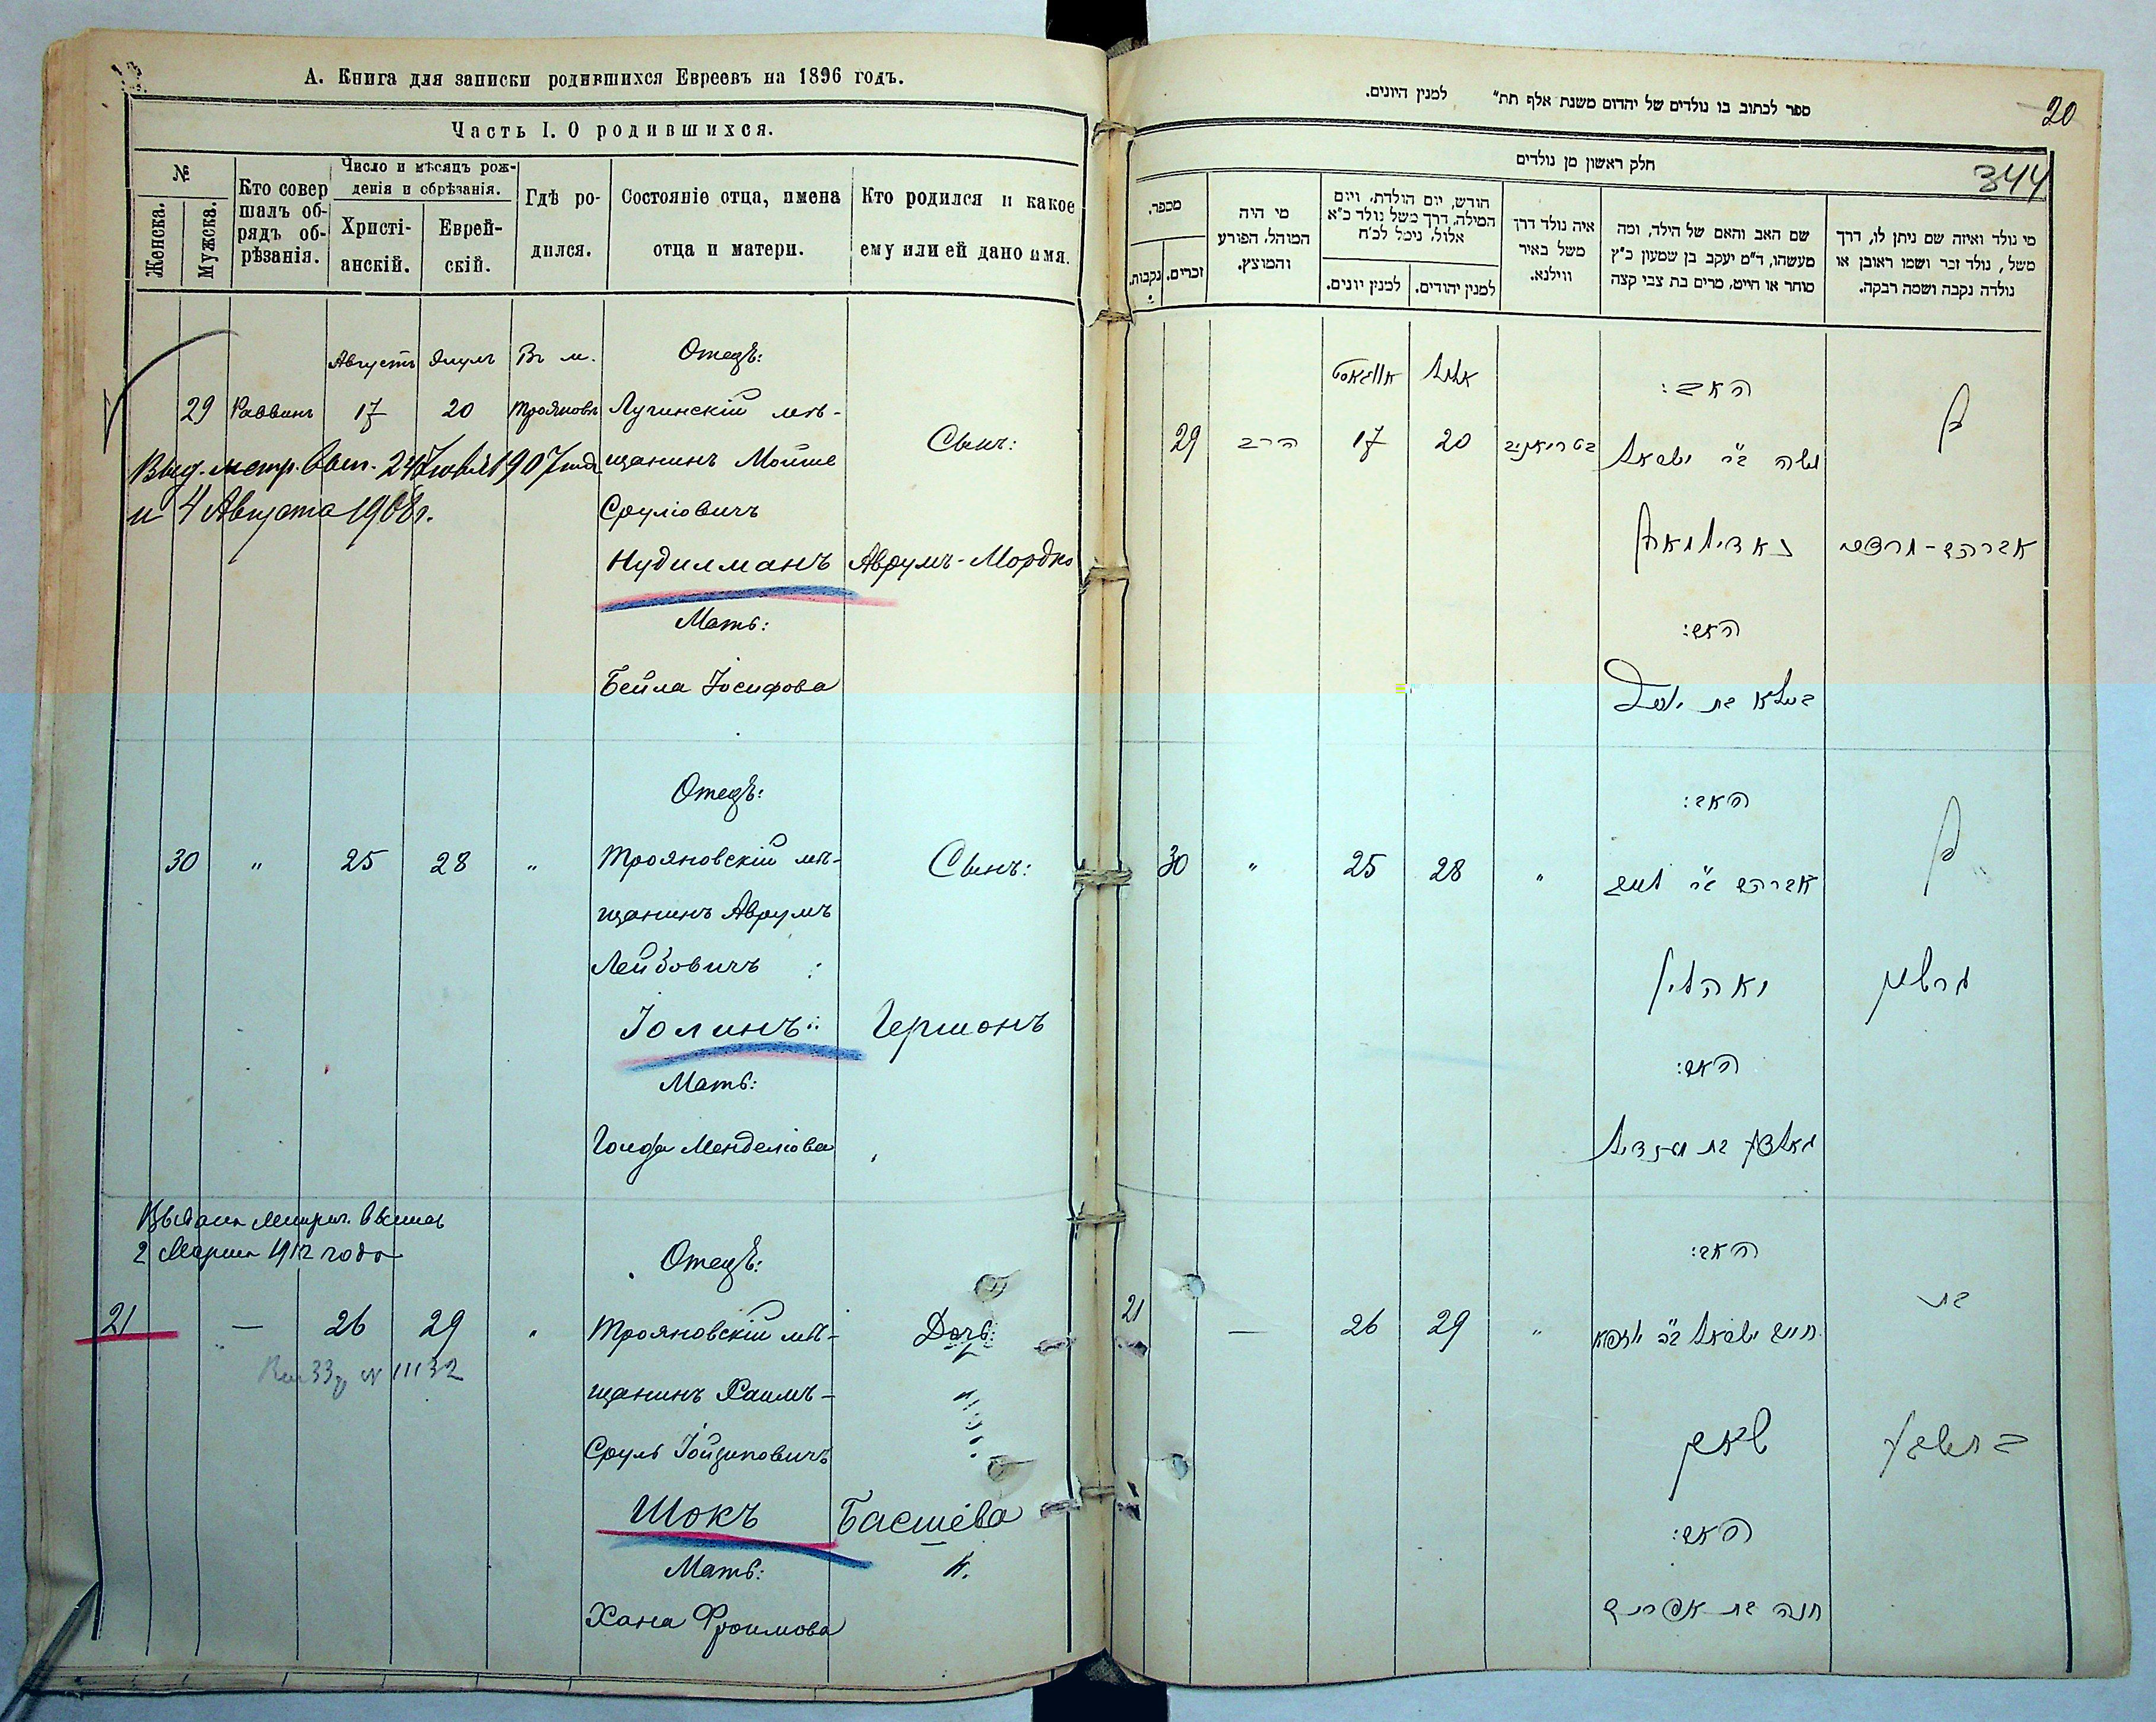 А. Книга для записки родившихся Евреевъ на 1896 годъ.
Часть I. О родившихся.
№
Женска.
Мужска.
Кто совершалъ обрядъ обрѣзанія.
Число и мѣсяцъ рожденія и обрѣзанія.
Христіанскій.
Еврейскій.
Гдѣ родился.
Состояніе отца, имена отца и матери.
Кто родился и какое ему или ей дано имя.
Августъ Элулъ Въ м. Отецъ:
29 Раввинъ 17 20 Трояновъ Лугинскій мѣ-
Сынъ:
Выд. метр. вып. 24 Іюня 1907 года
щанинъ Мойше
и 4 Августа 1908 г.
Сруліовичъ
Нудилманъ Аврумъ-Мордко
Мать:
Бейла Іосифова
Отецъ:
30 " 25 28 " Трояновскій мѣ- Сынъ:
щанинъ Аврумъ
Лейбовичъ
Іолинъ: Гершонъ
Мать:
Голда Менделіова
Выдана метрич. выпись
2 Марта 1912 года
Отецъ:
21 — 26 29 " Трояновскій мѣ- Дочь:
№ 11132
щанинъ Хаимъ-
Сруль Іойзиповичъ
Шокъ Басшева
Мать:
Хана Фроимова
20
ספר לכתוב בו נולדים של יהדום משנת אלף תת״ למנין היונים.
חלק ראשון מן נולדים
344
מי נולד ואיזה שם ניתן לו, דרך משל, נולד זכר ושמו ראובן או נולדה נקבה ושמה רבקה.
שם האב והאם של הילד, ומה מעשהו, ד״מ יעקב בן שמעון כ״ץ סוחר או חייט, מרים בת צבי קצה
איה נולד דרך משל באיר ווילנא.
חודש, יום הולדת, ויום המילה, דרך משל נולד כ״א אלול, נימל לכ״ח
למנין יהודים.
למנין יונים.
מי היה המוהל, הפורע והמוצץ.
מספר.
זכרים.
נקבות.
אלול אווגוסט
האב:
בן
29 הרב 17 20 בטריאניב משה ב״ר ישראל
נאדילמאן אברהם-מרדכי
האם:
ביילא בת יוסף
האב:
בן
30 " 25 28 " אברהם ב״ר לייב
יאהלין גרשון
האם:
גאלדע בת מענדיל
האב:
בת
21 — 26 29 " חיים ישראל ב״ר
שאק בתשבע
האם:
חנה בת אפרים